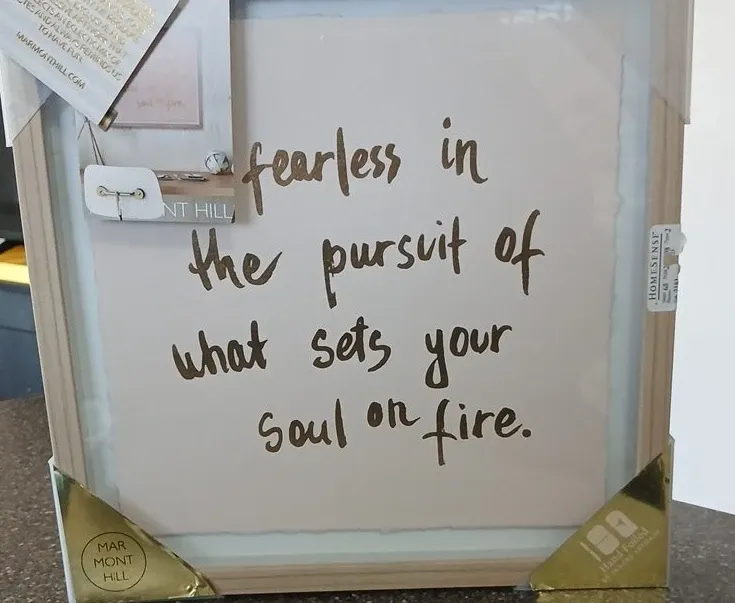 TO HAVE FUN
MARMONTHILL.COM
soul on fire.
NT HILL
fearless in
the pursuit of
what sets your
soul on fire.
HOMESENSE
MAR
MONT
HILL
Hand Foiled